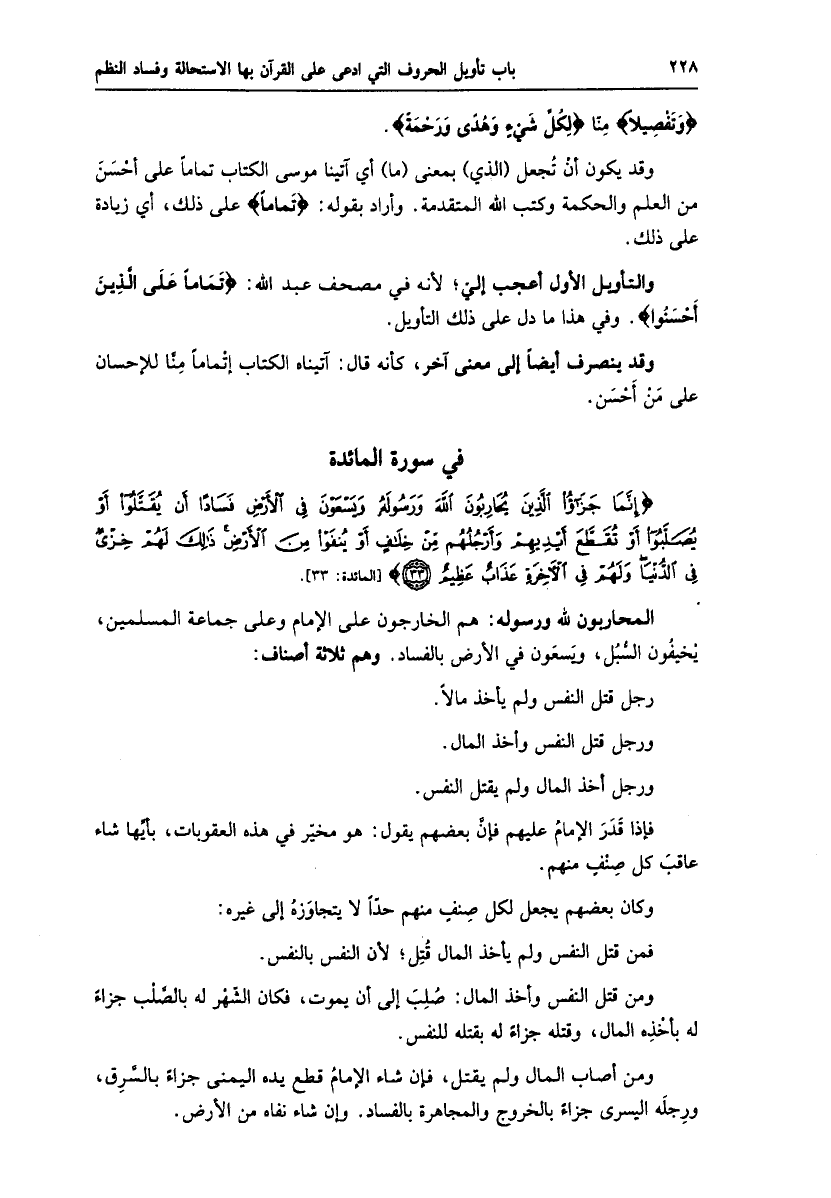 ٢٢٨ باب تأويل الحروف التي ادعى على القرآن بها الاستحالة وفساد النظم
﴿وَتَفْصِيلاً﴾ مِنّا ﴿لِكُلِّ شَيْءٍ وَهُدًى وَرَحْمَةً﴾.
وقد يكون أنْ تُجعل (الذي) بمعنى (ما) أي آتينا موسى الكتاب تماماً على أحْسَنَ
من العلم والحكمة وكتب الله المتقدمة. وأراد بقوله: ﴿تَماماً﴾ على ذلك، أي زيادة
على ذلك.
والتأويل الأول أعجب إليّ؛ لأنه في مصحف عبد الله: ﴿تَمَاماً عَلَى الَّذِينَ
أَحْسَنُوا﴾. وفي هذا ما دل على ذلك التأويل.
وقد ينصرف أيضاً إلى معنى آخر، كأنه قال: آتيناه الكتاب إتْماماً مِنَّا للإحسان
على مَنْ أَحْسَن.
في سورة المائدة
﴿إِنَّمَا جَزَٰٓؤُا۟ ٱلَّذِينَ يُحَارِبُونَ ٱللَّهَ وَرَسُولَهُۥ وَيَسْعَوْنَ فِى ٱلْأَرْضِ فَسَادًا أَن يُقَتَّلُوٓا۟ أَوْ
يُصَلَّبُوٓا۟ أَوْ تُقَطَّعَ أَيْدِيهِمْ وَأَرْجُلُهُم مِّنْ خِلَٰفٍ أَوْ يُنفَوْا۟ مِنَ ٱلْأَرْضِ ۚ ذَٰلِكَ لَهُمْ خِزْىٌ
فِى ٱلدُّنْيَا ۖ وَلَهُمْ فِى ٱلْـَٔاخِرَةِ عَذَابٌ عَظِيمٌ ٣٣﴾ [المائدة: ٣٣].
المحاربون لله ورسوله: هم الخارجون على الإمام وعلى جماعة المسلمين،
يُخيفُون السُّبُل، ويَسعَون في الأرض بالفساد. وهم ثلاثة أصناف:
رجل قتل النفس ولم يأخذ مالاً.
ورجل قتل النفس وأخذ المال.
ورجل أخذ المال ولم يقتل النفس.
فإذا قَدَرَ الإمامُ عليهم فإنَّ بعضهم يقول: هو مخيّر في هذه العقوبات، بأيِّها شاء
عاقبَ كل صِنْفٍ منهم.
وكان بعضهم يجعل لكل صِنفٍ منهم حدّاً لا يتجاوَزهُ إلى غيره:
فمن قتل النفس ولم يأخذ المال قُتِل؛ لأن النفس بالنفس.
ومن قتل النفس وأخذ المال: صُلِبَ إلى أن يموت، فكان الشَّهْر له بالصَّلْب جزاءً
له بأخْذِه المال، وقتله جزاءً له بقتله للنفس.
ومن أصاب المال ولم يقتل، فإن شاء الإمامُ قطع يده اليمنى جزاءً بالسَّرِق،
ورِجلَه اليسرى جزاءً بالخروج والمجاهرة بالفساد. وإن شاء نفاه من الأرض.